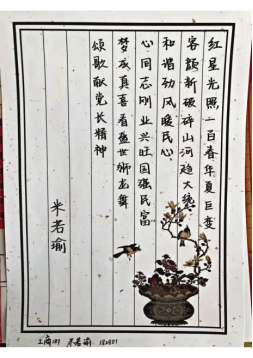 红星光照一百春华夏巨变
容颜新破碎山河趋大统
和谐劲风暖民心
心同志刚业兴旺国强民富
梦成真喜看盛世狮龙舞
颂歌献党长精神
米若瑜
工商 米若瑜